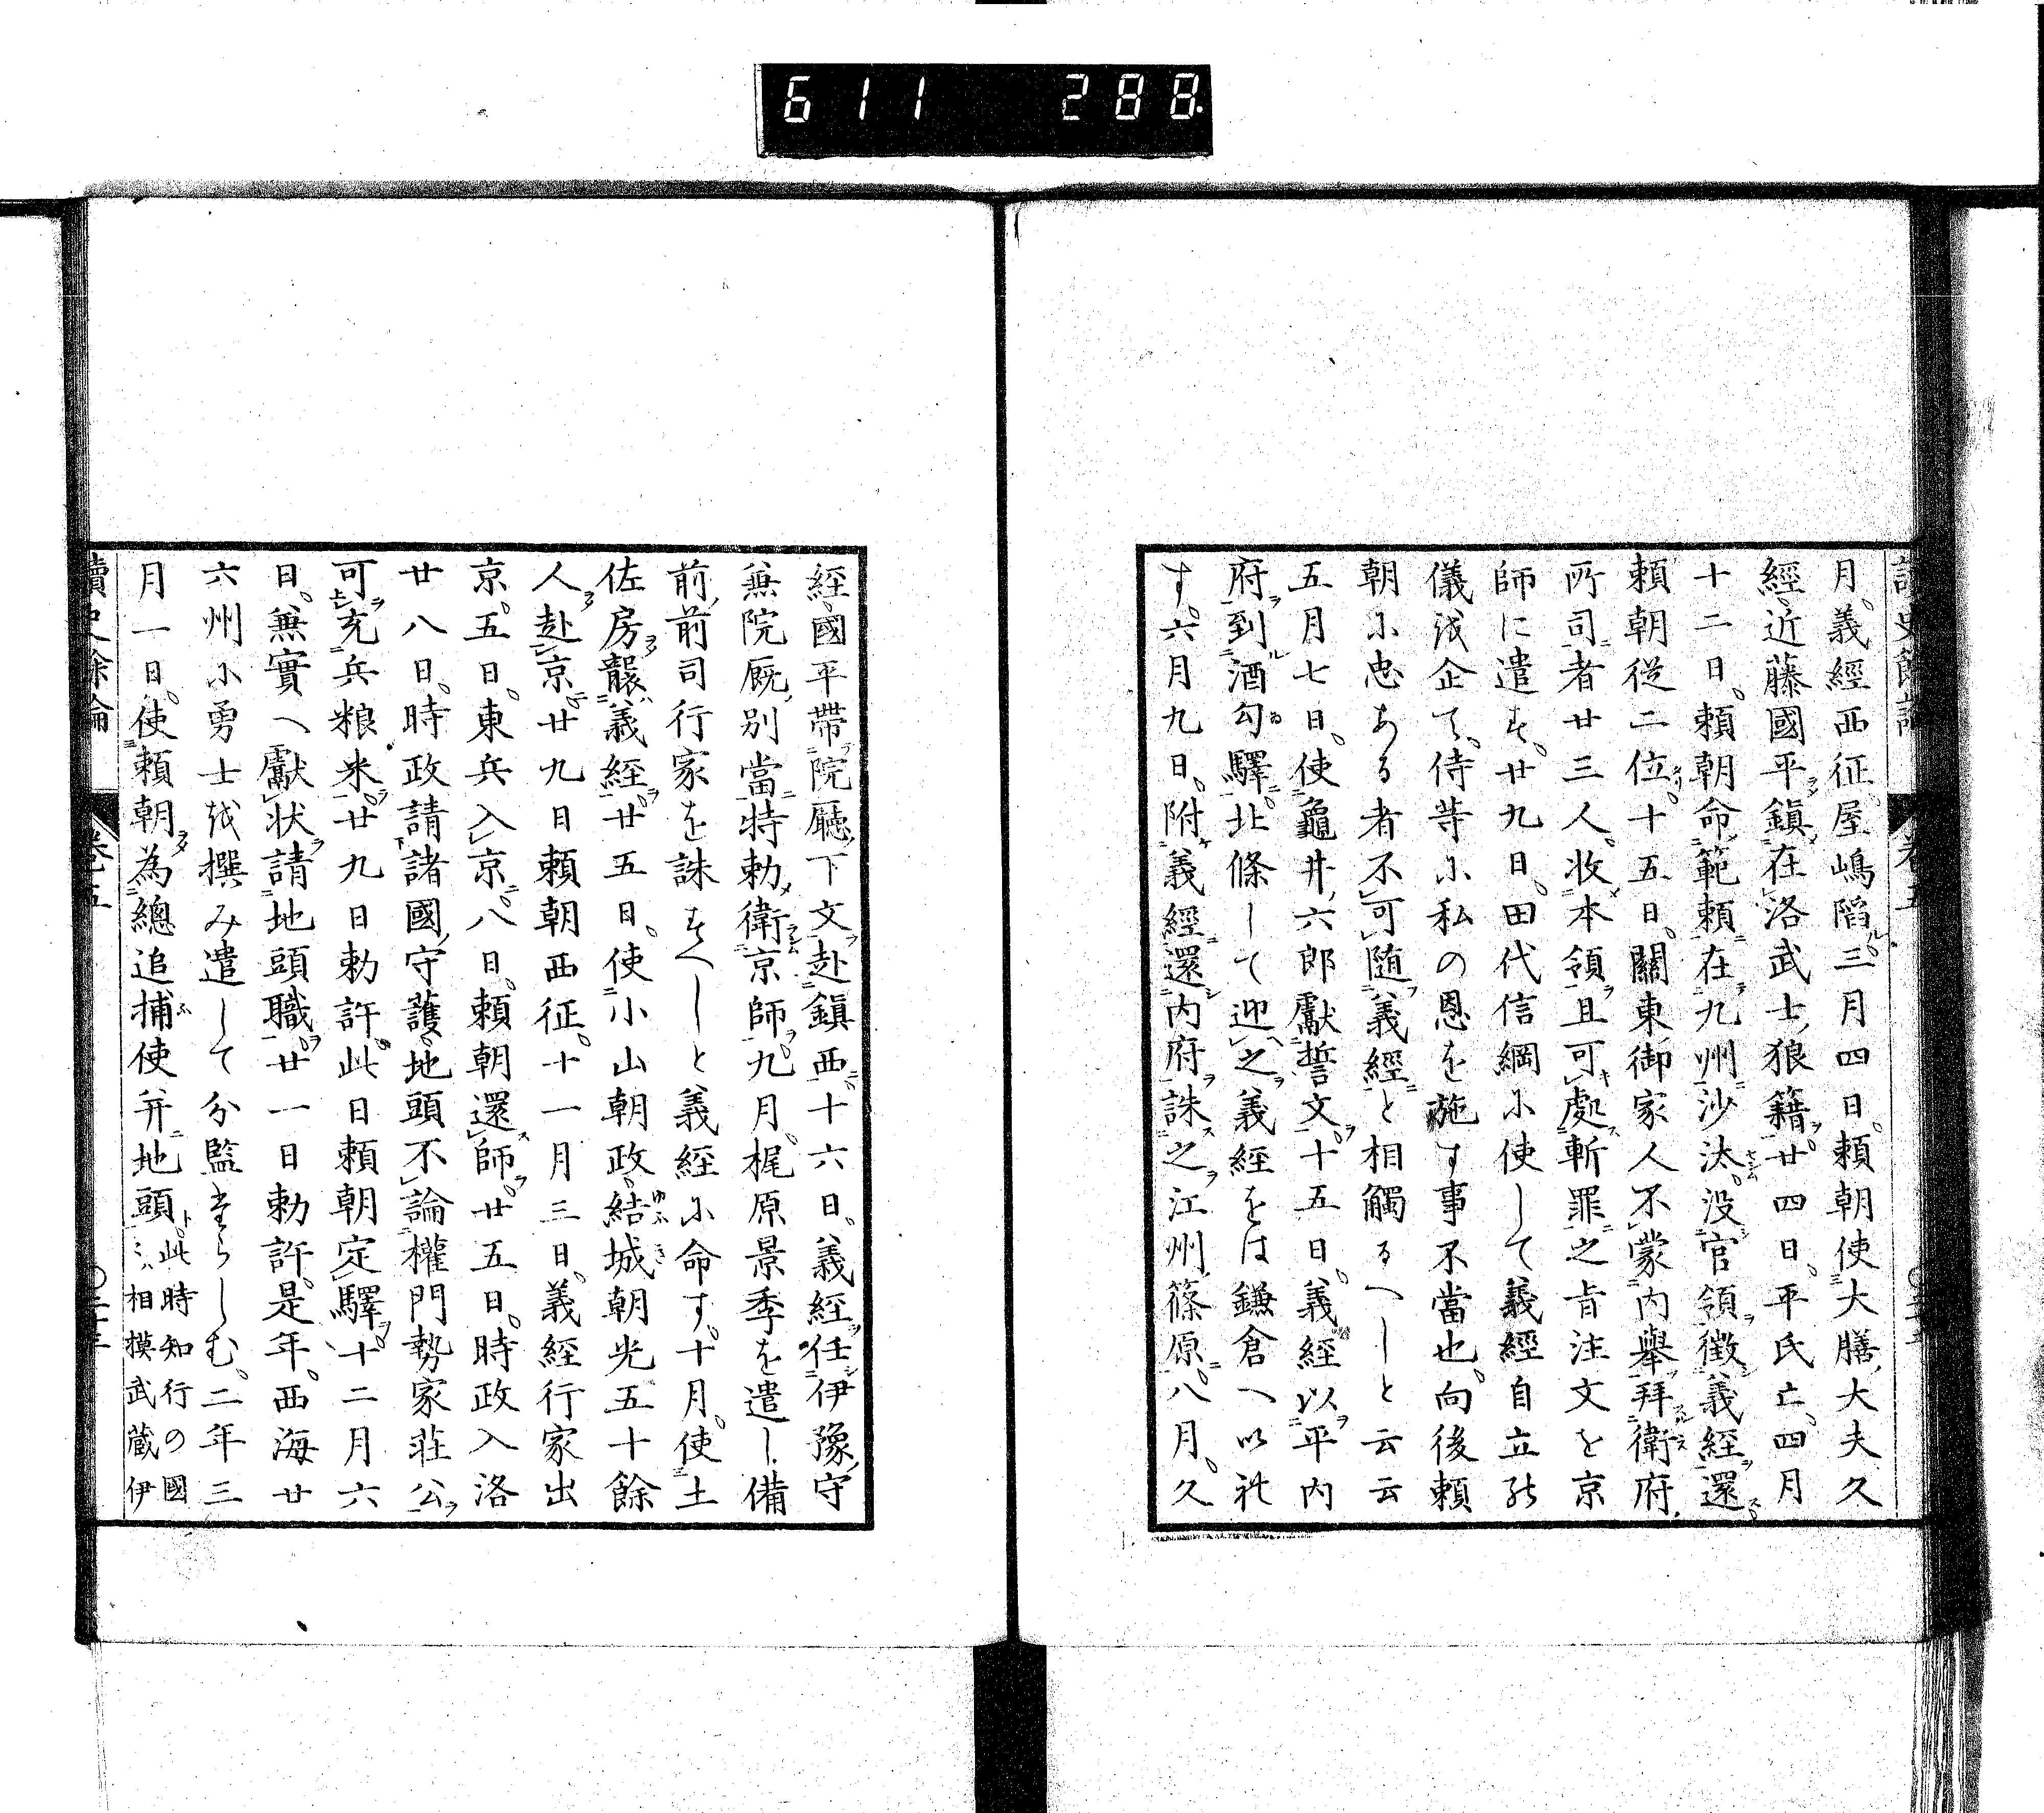 6 1 1 2 8 8
月義經西征屋嶋陷三月四日頼朝使大膳大夫久
經近藤國平鎮在洛武士狼籍廿四日平氏亡四月
十二日頼朝命範頼在九州沙汰没官領徴義經還
頼朝從二位十五日關東御家人不蒙内舉拜衛府
所司者廿三人收本領且可處斬罪之旨注文を京
師に遣す廿九日田代信綱に使して義經自立の
儀を企て侍等に私の恩を施す事不當也向後頼
朝に忠ある者不可随義經と相觸るへしと云云
五月七日使龜井六郎獻誓文十五日義經以平内
府到酒匂驛北條して迎之義經をは鎌倉へ以れ
す六月九日附義經還内府誅之江州篠原八月久
經國平帶院廳下文赴鎮西十六日義經任伊豫守
兼院厩別當特勅衛京師九月梶原景季を遣し備
前前司行家を誅すへしと義經に命す十月使土
佐房襲義經廿五日使小山朝政結城朝光五十餘
人赴京廿九日頼朝西征十一月三日義經行家出
京五日東兵入京八日頼朝還師廿五日時政入洛
廿八日時政請諸國守護地頭不論權門勢家莊公
可充兵粮米廿九日勅許此日頼朝定驛十二月六
日兼實へ獻状請地頭職廿一日勅許是年西海廿
六州に勇士を撰み遣して分監せらしむ二年三
月一日使頼朝為總追捕使并地頭此時知行の國
ミハ相摸武蔵伊
讀史餘論 卷五